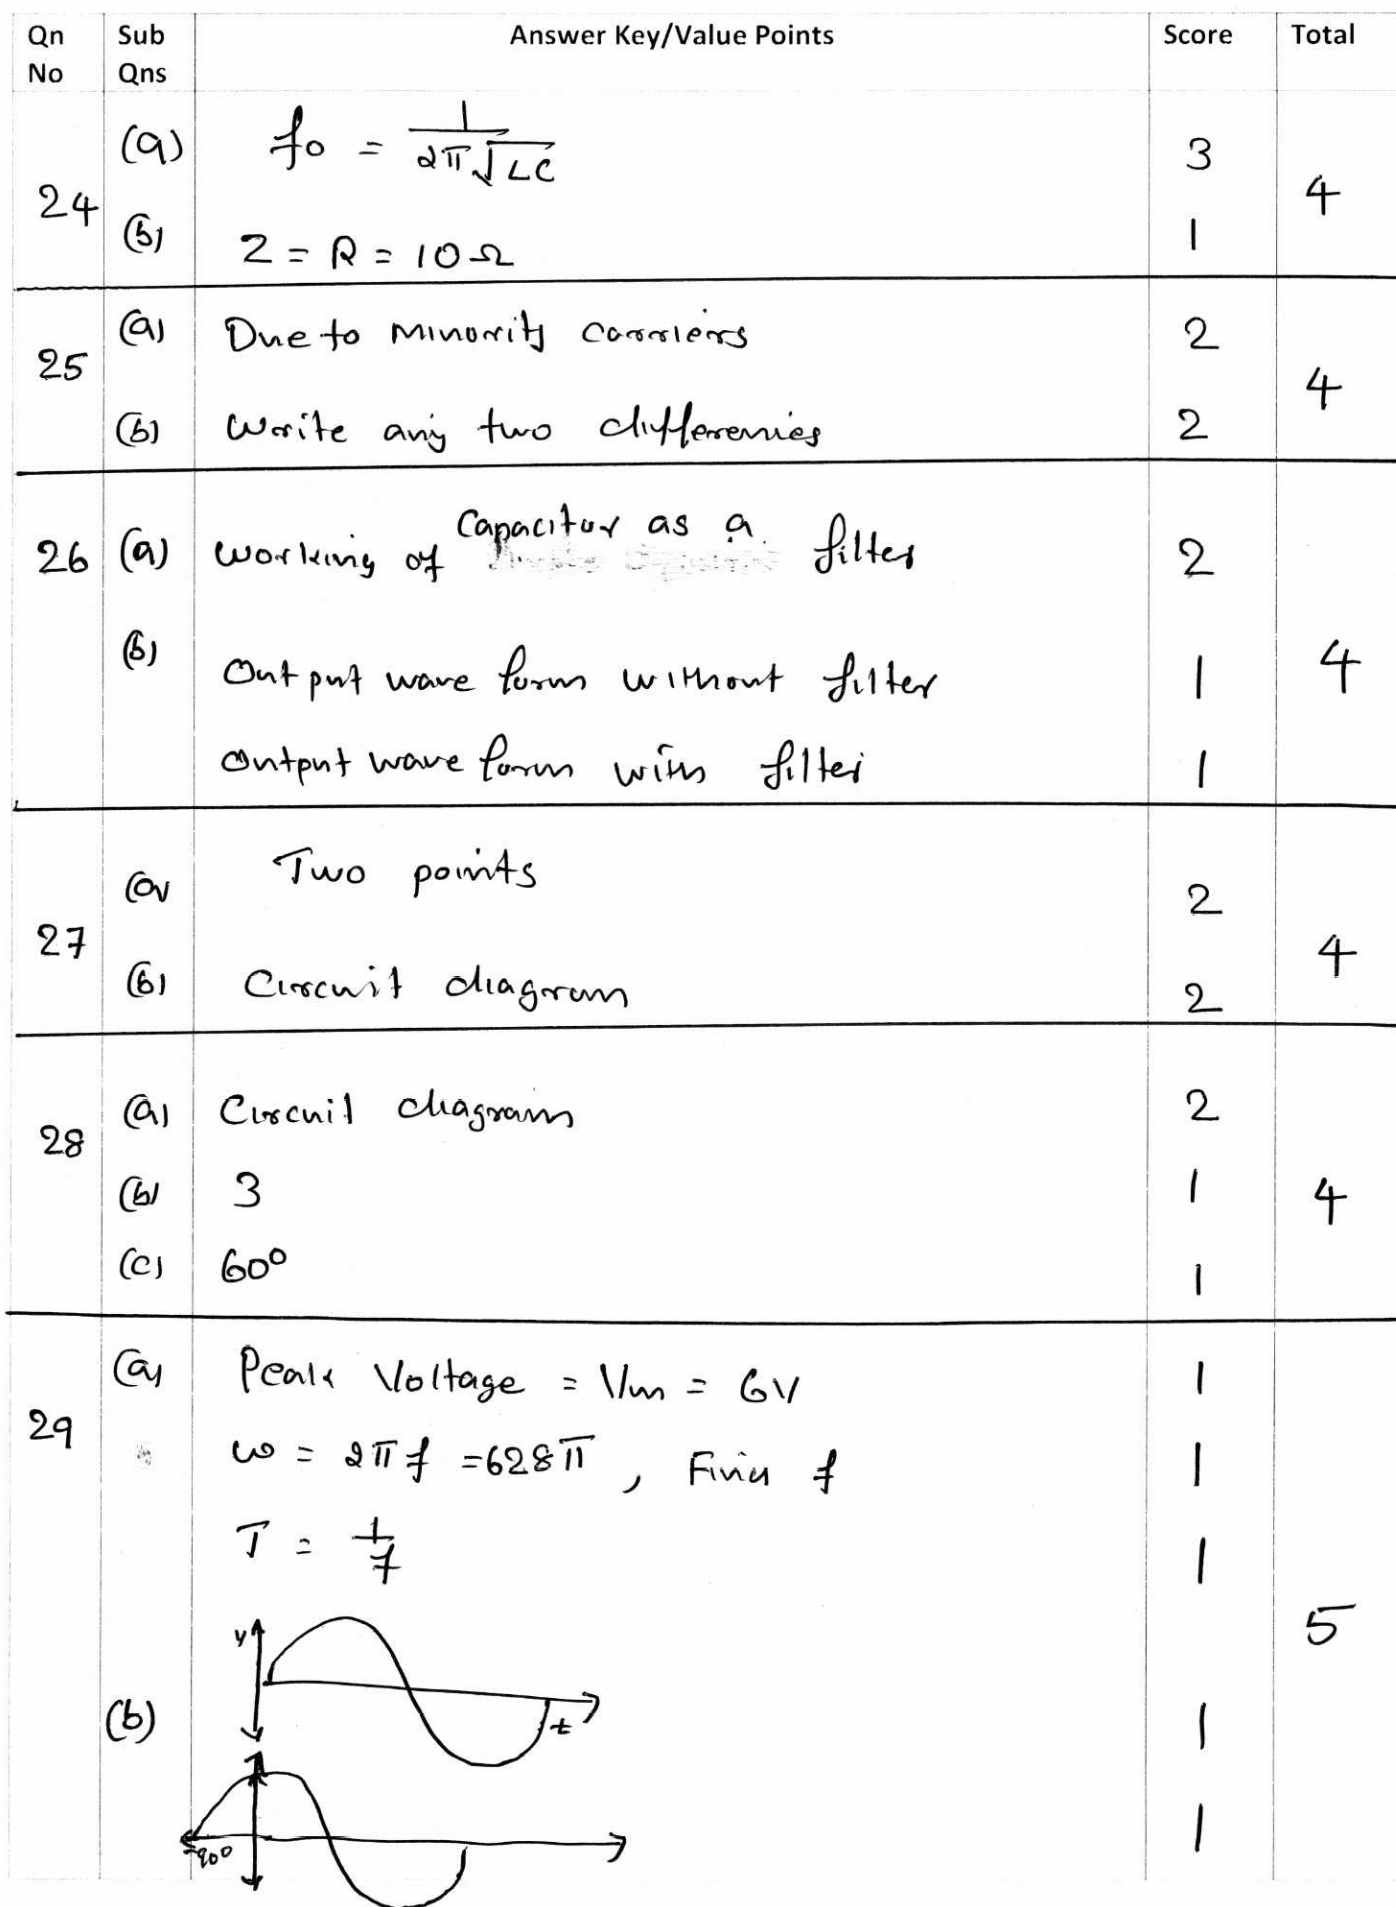 Qn No Sub Qns Answer Key/Value Points Score Total
24 (a) f0 = 1/2π√LC 3 4
(b) Z = R = 10Ω 1
25 (a) Due to Minority carriers 2 4
(b) Write any two differences 2
26 (a) working of Capacitor as a filter 2 4
(b) Output wave form without filter 1
Output wave form with filter 1
27 (a) Two points 2 4
(b) Circuit diagram 2
28 (a) Circuit diagram 2 4
(b) 3 1
(c) 60° 1
29 (a) Peak Voltage = Vm = 6V 1 5
ω = 2πf = 628π, Find f 1
T = 1/f 1
(b) y t 1
-90° 1